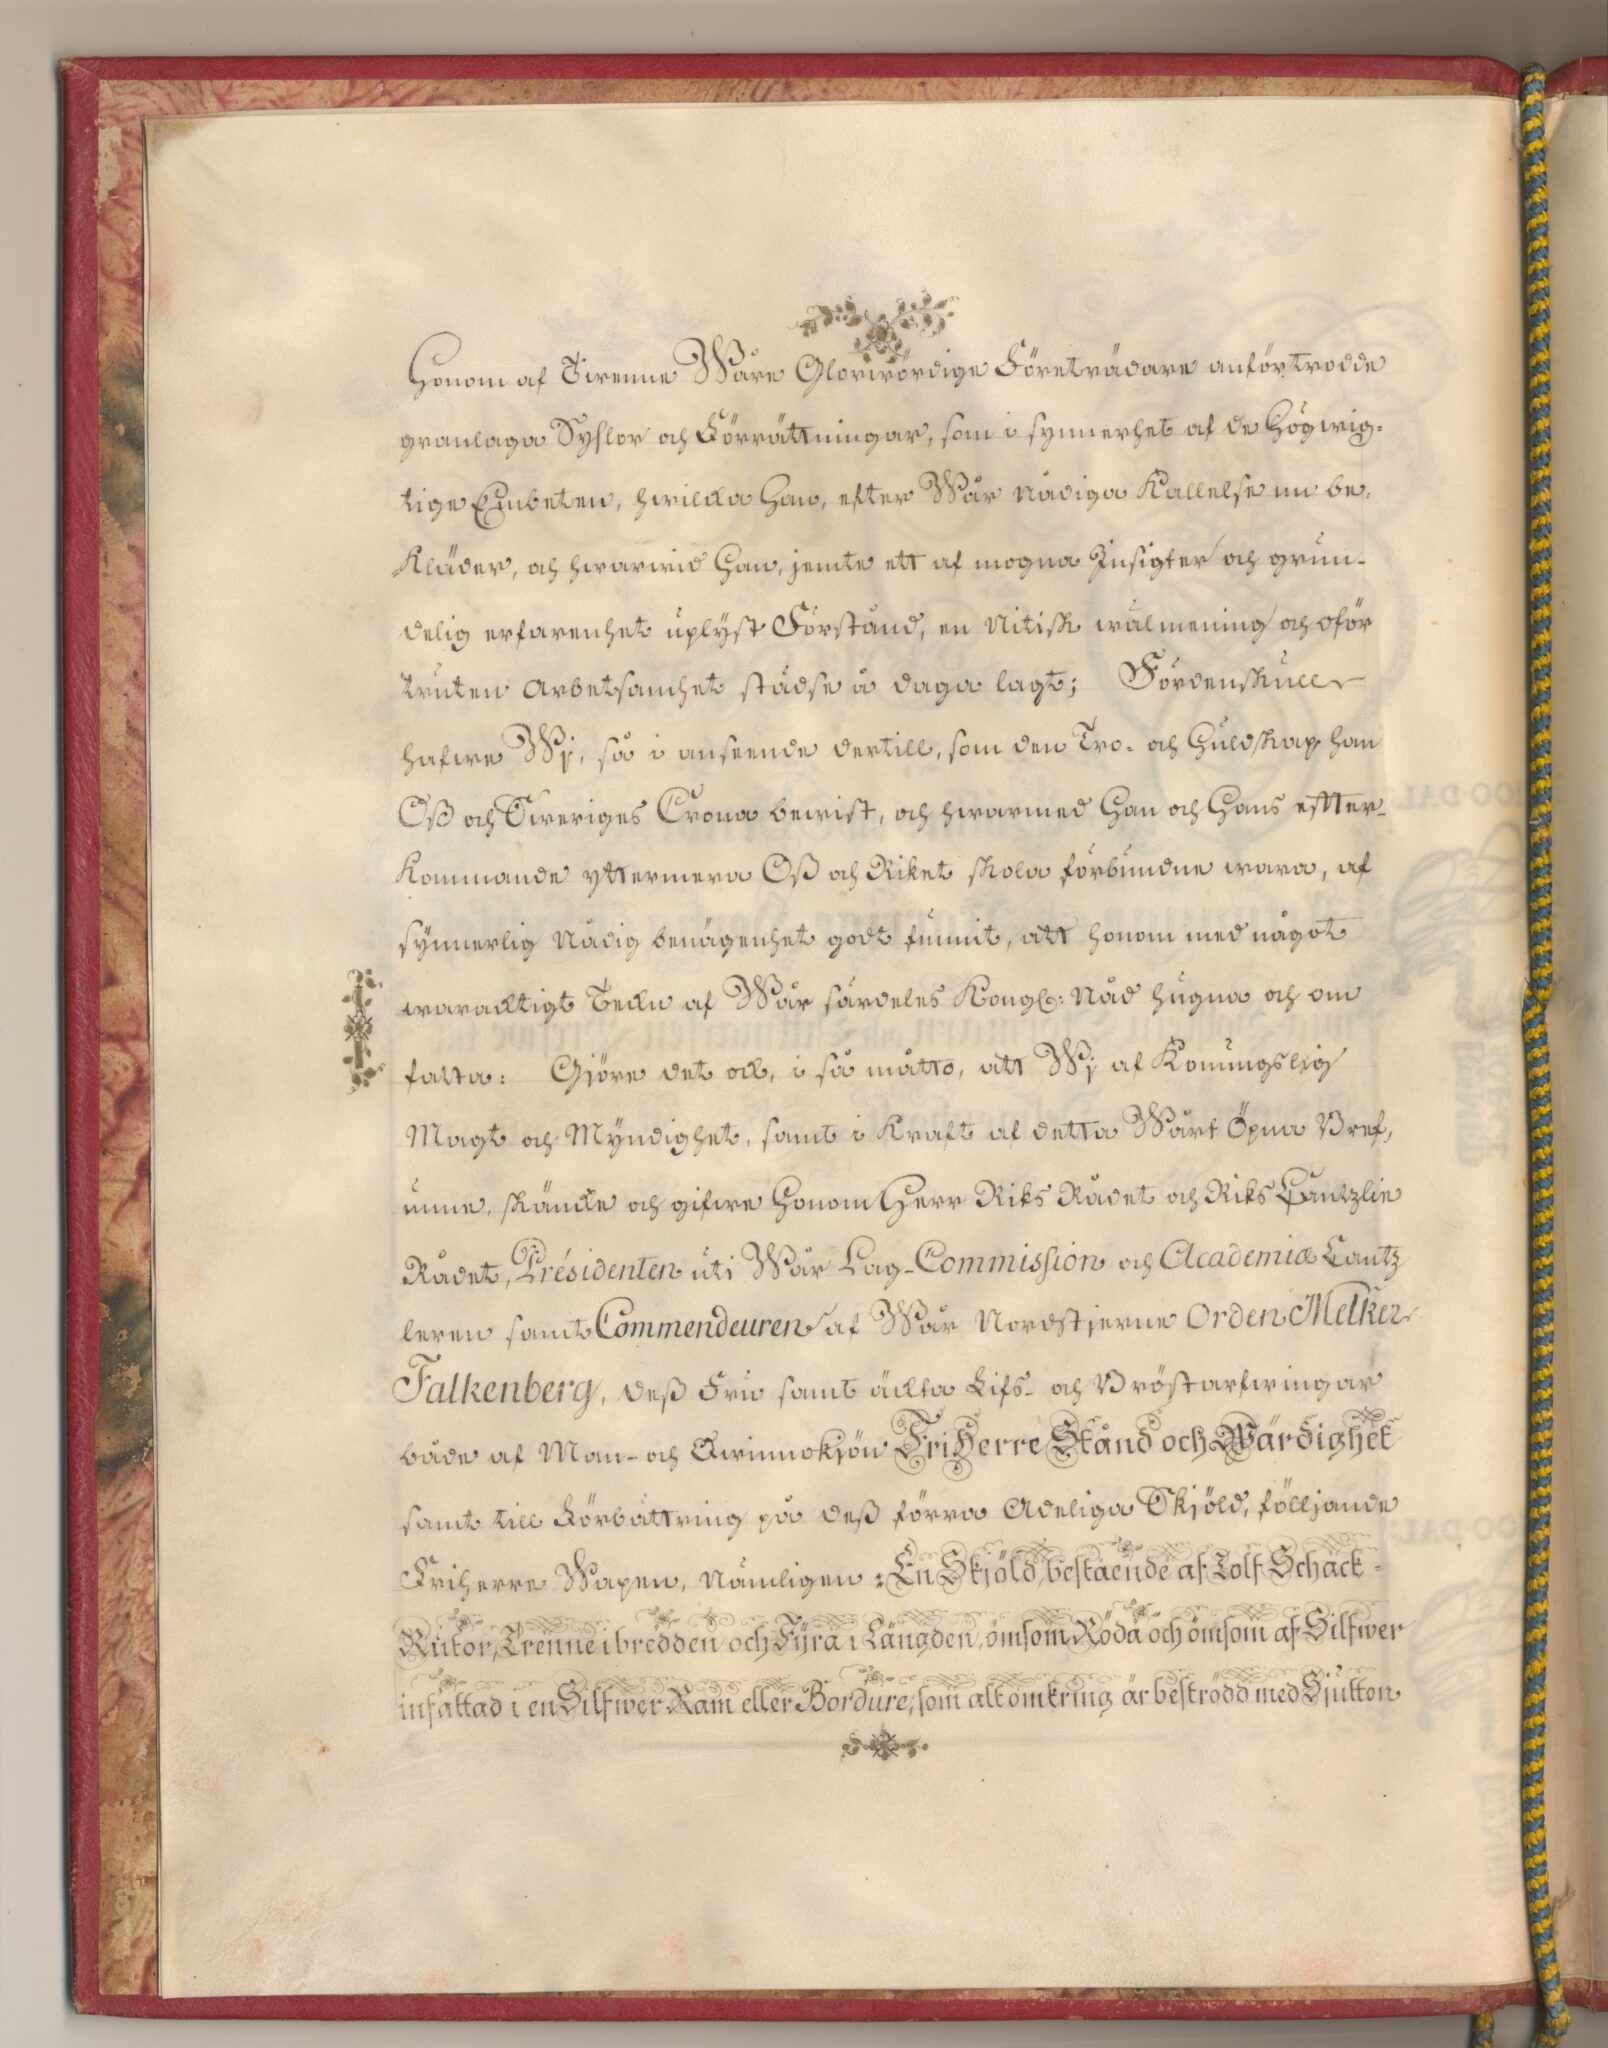 Honom af Twenne Wåre Glorwördige Företrädare anförtrodde
granlaga Syslor och Förrättningar, som i synnerhet af de Högwig=
tige Embeten, hwilcka Han, efter Wår nådiga Kallelse nu be=
kläder, och hwarwid Han, jemte ett af mogna Insigter och grun-
delig erfarenhet uplyst Förstånd, en Nitisk wälmening och oför
truten arbetsamhet städse å daga lagt; Fördenskull
hafwe Wj, så i anseende dertill, som den Tro- och Huldskap han
Oß och Sweriges Crona bewist, och hwarmed Han och Hans effter-
kommande yttermera Oß och Riket skola förbundne wara, af
synnerlig Nådig benägenhet godt funnit, att honom med något
warachtigt Teckn af Wår särdeles Kongl: Nåd hugna och om
fatta: Gjöre det ock, i så måtto, att Wj af Konungslig
Magt och Myndighet, samt i Kraft af detta Wårt Öpna Bref,
unne, skäncke och gifwe Honom Herr Riks Rådet och Riks Cantzlie
Rådet, Présidenten uti Wår Lag-Commission och Academiæ Cantz
leren samt Commendeuren af Wår Nordstjerne Orden Melker
Falkenberg, deß Fru samt ächta Lifs- och Bröstarfwingar
både af Man- och Qwinnokjön FriHerre Stånd och Wärdighet
samt till Förbättring på deß förra Adeliga Skjöld, följjande
Friherre Wapen, Nämligen: En Skjöld, bestående af Tolf Schack-
Rutor, Trenne i bredden och Fyra i Längden, ömsom Röda och ömsom af Silfwer
infattad i en Silfwer Ram eller Bordure, som alt omkring är beströdd med Sjutton